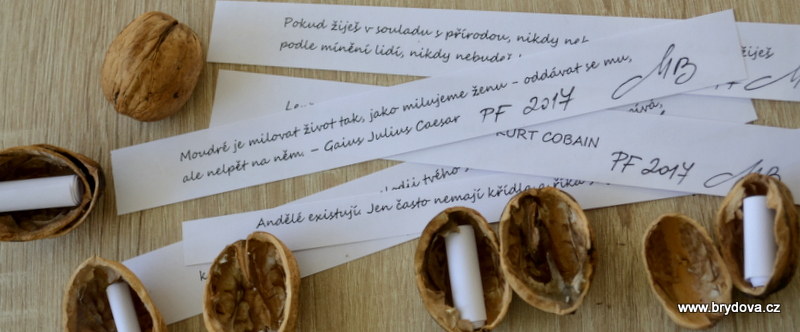 Pokud žiješ v souladu s přírodou, nikdy
podle mínění lidí, nikdy nebudeš
žiješ
Moudré je milovat život tak, jako milujeme ženu – oddávat se mu,
ale nelpět na něm. – Gaius Julius Caesar PF 2017 MB
KURT COBAIN
PF 2017 MB
tvého
Andělé existují. Jen často nemají křídla a říká
www.brydova.cz